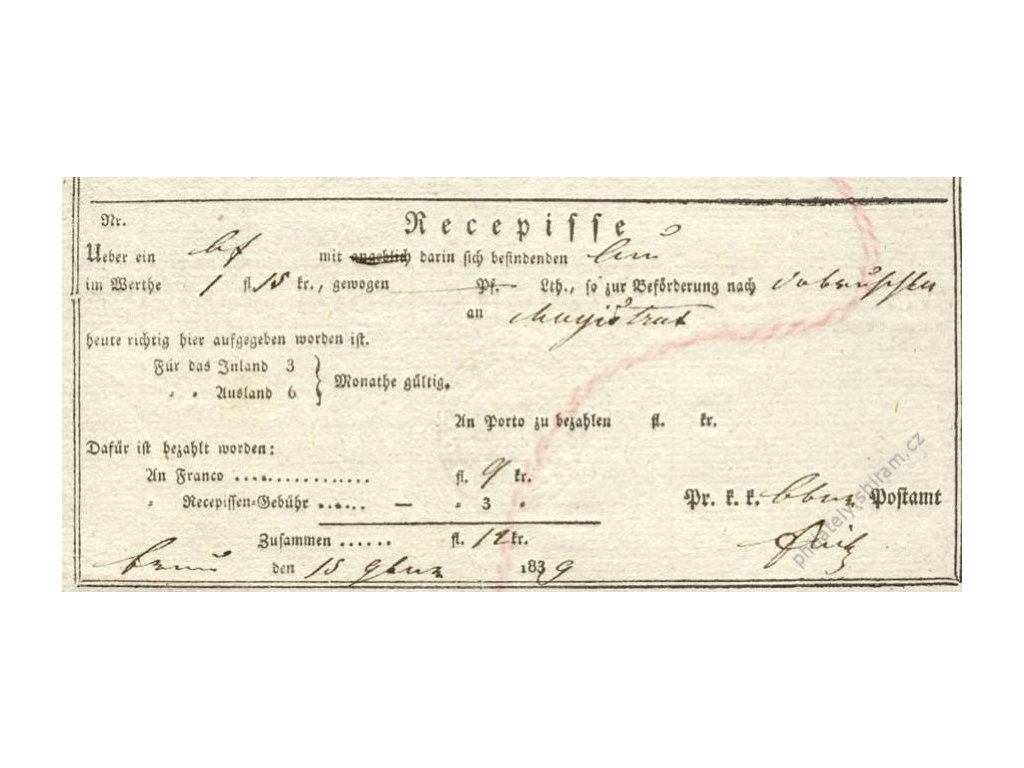 Nr. Recepisse
Ueber ein bf mit angeblich darin sich befindenden
im Werthe 1 fl. 15 kr., gewogen Pf. Lth., so zur Beförderung nach Dobruschka
an Magistrat
heute richtig hier aufgegeben worden ist.
Für das Inland 3
" " Ausland 6 } Monathe gültig.
An Porto zu bezahlen fl. kr.
Dafür ist bezahlt worden:
An Franco ................ fl. 9 kr.
" Recepissen-Gebühr ...... — " 3 "
Pr. k. k. Postamt
Zusammen ...... fl. 12 kr.
Brünn den 15 9ber 1839
philately.sbiram.cz